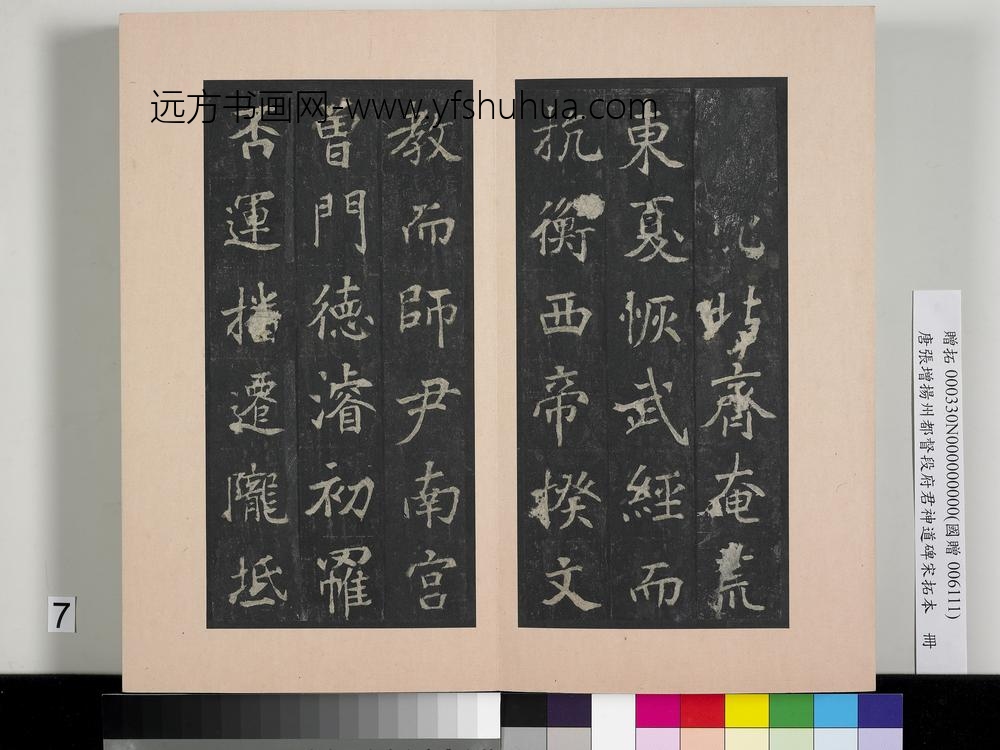 远方书画网-www.yfshuhua.com
时齊奄荒
東夏恢武經而
抗衡西帝揆文
教而師尹南宮
曽門德濬初罹
否運播遷隴坻
贈拓 000330N000000000(國贈 006111)
唐張增揚州都督段府君神道碑宋拓本 冊
7